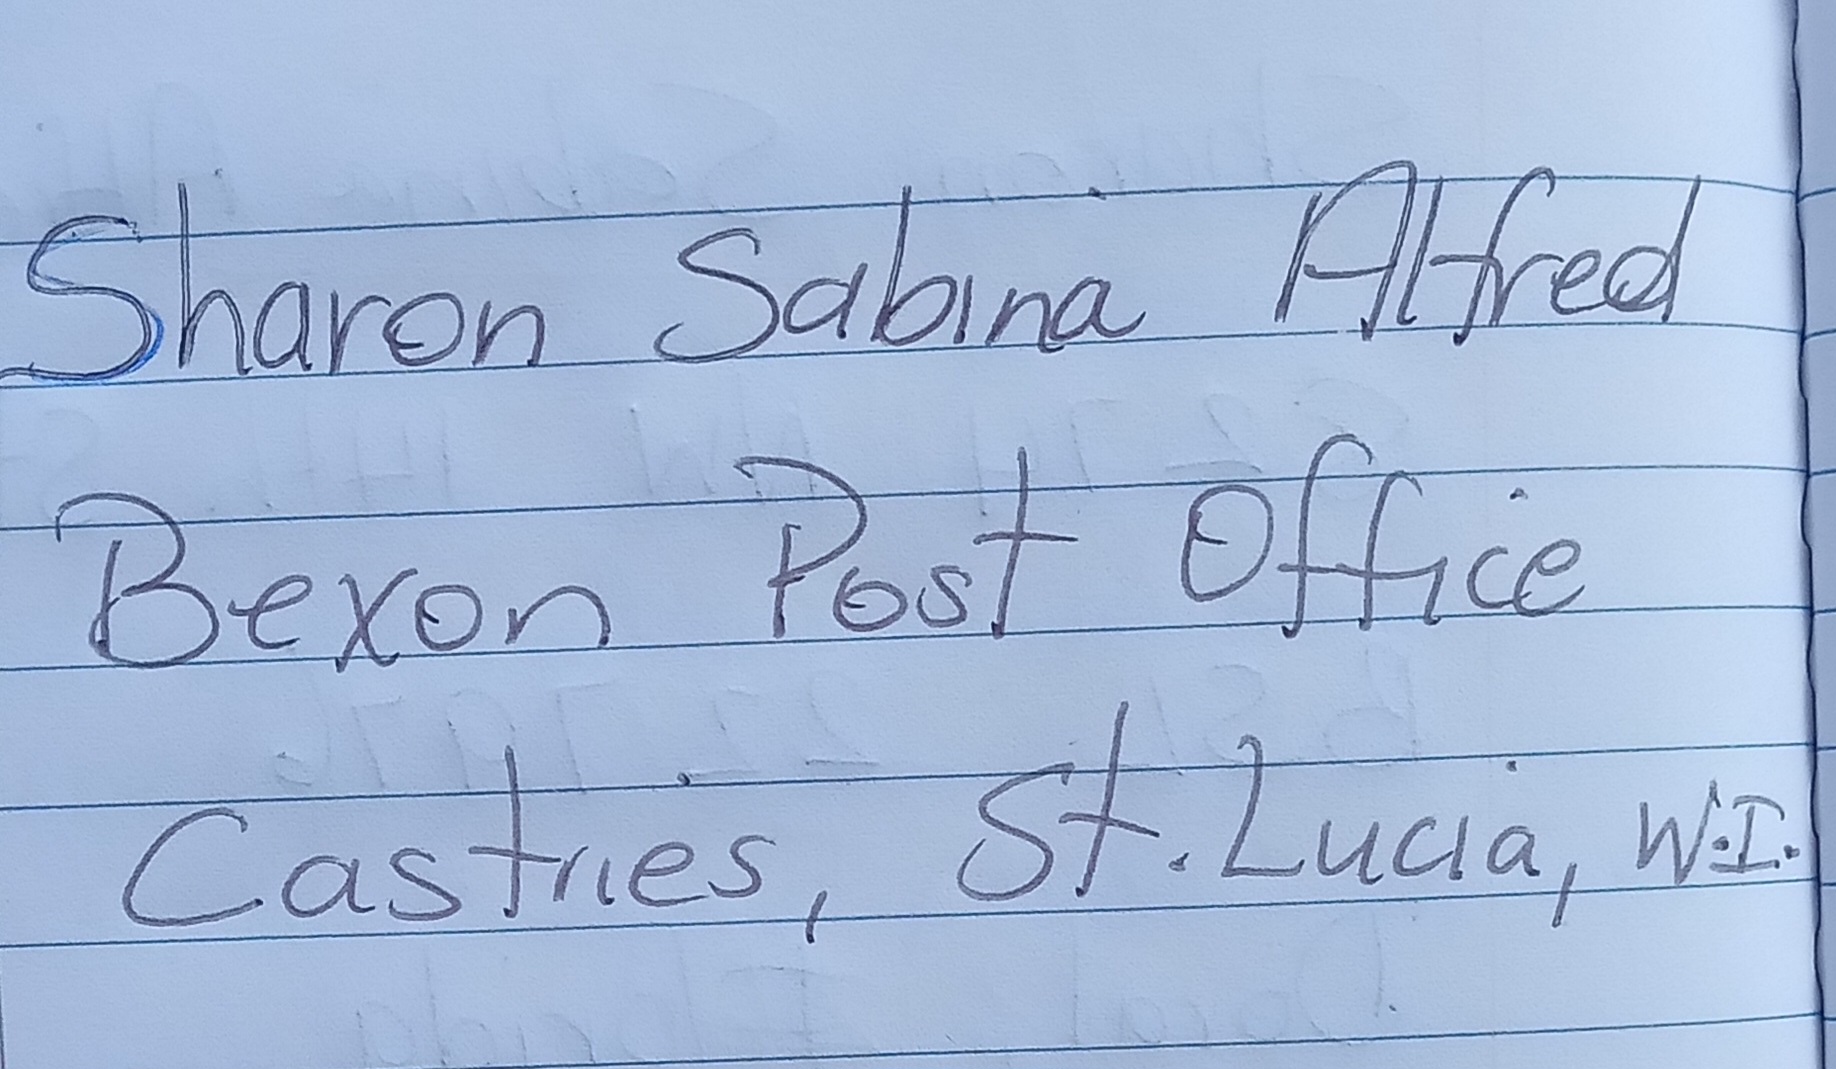 Sharon Sabina Alfred
Bexon Post Office
Castries, St. Lucia, W.I.